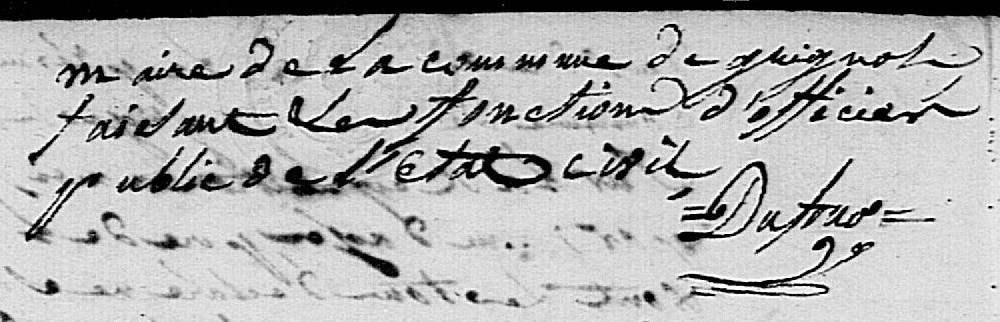 maire de la commune de guignols
faisant les fonctions d'officier
public de l'état civil
Dufour